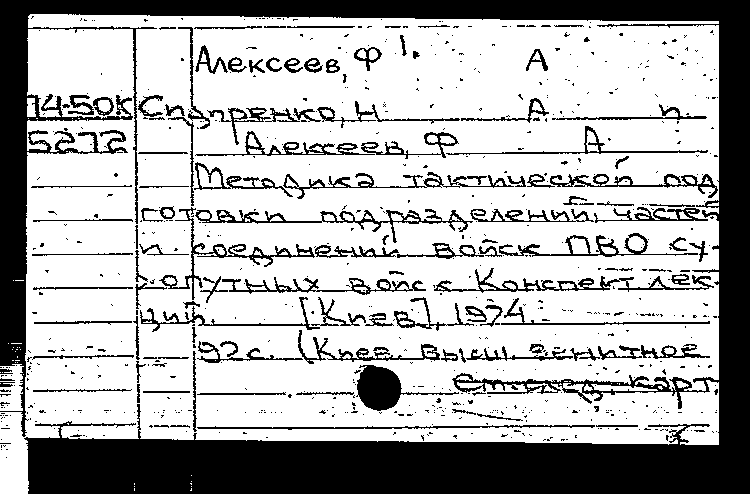 Алексеев, Ф 1. А
74-50К Сидоренко, Н А п.
5272 Алексеев, Ф А
Методика тактической под
готовки подразделений, частей
и соединений войск ПВО су-
хопутных войск Конспект лек-
ций. [Киев], 1974.
92 с. (Киев. высш. зенитное
см. след. карт.